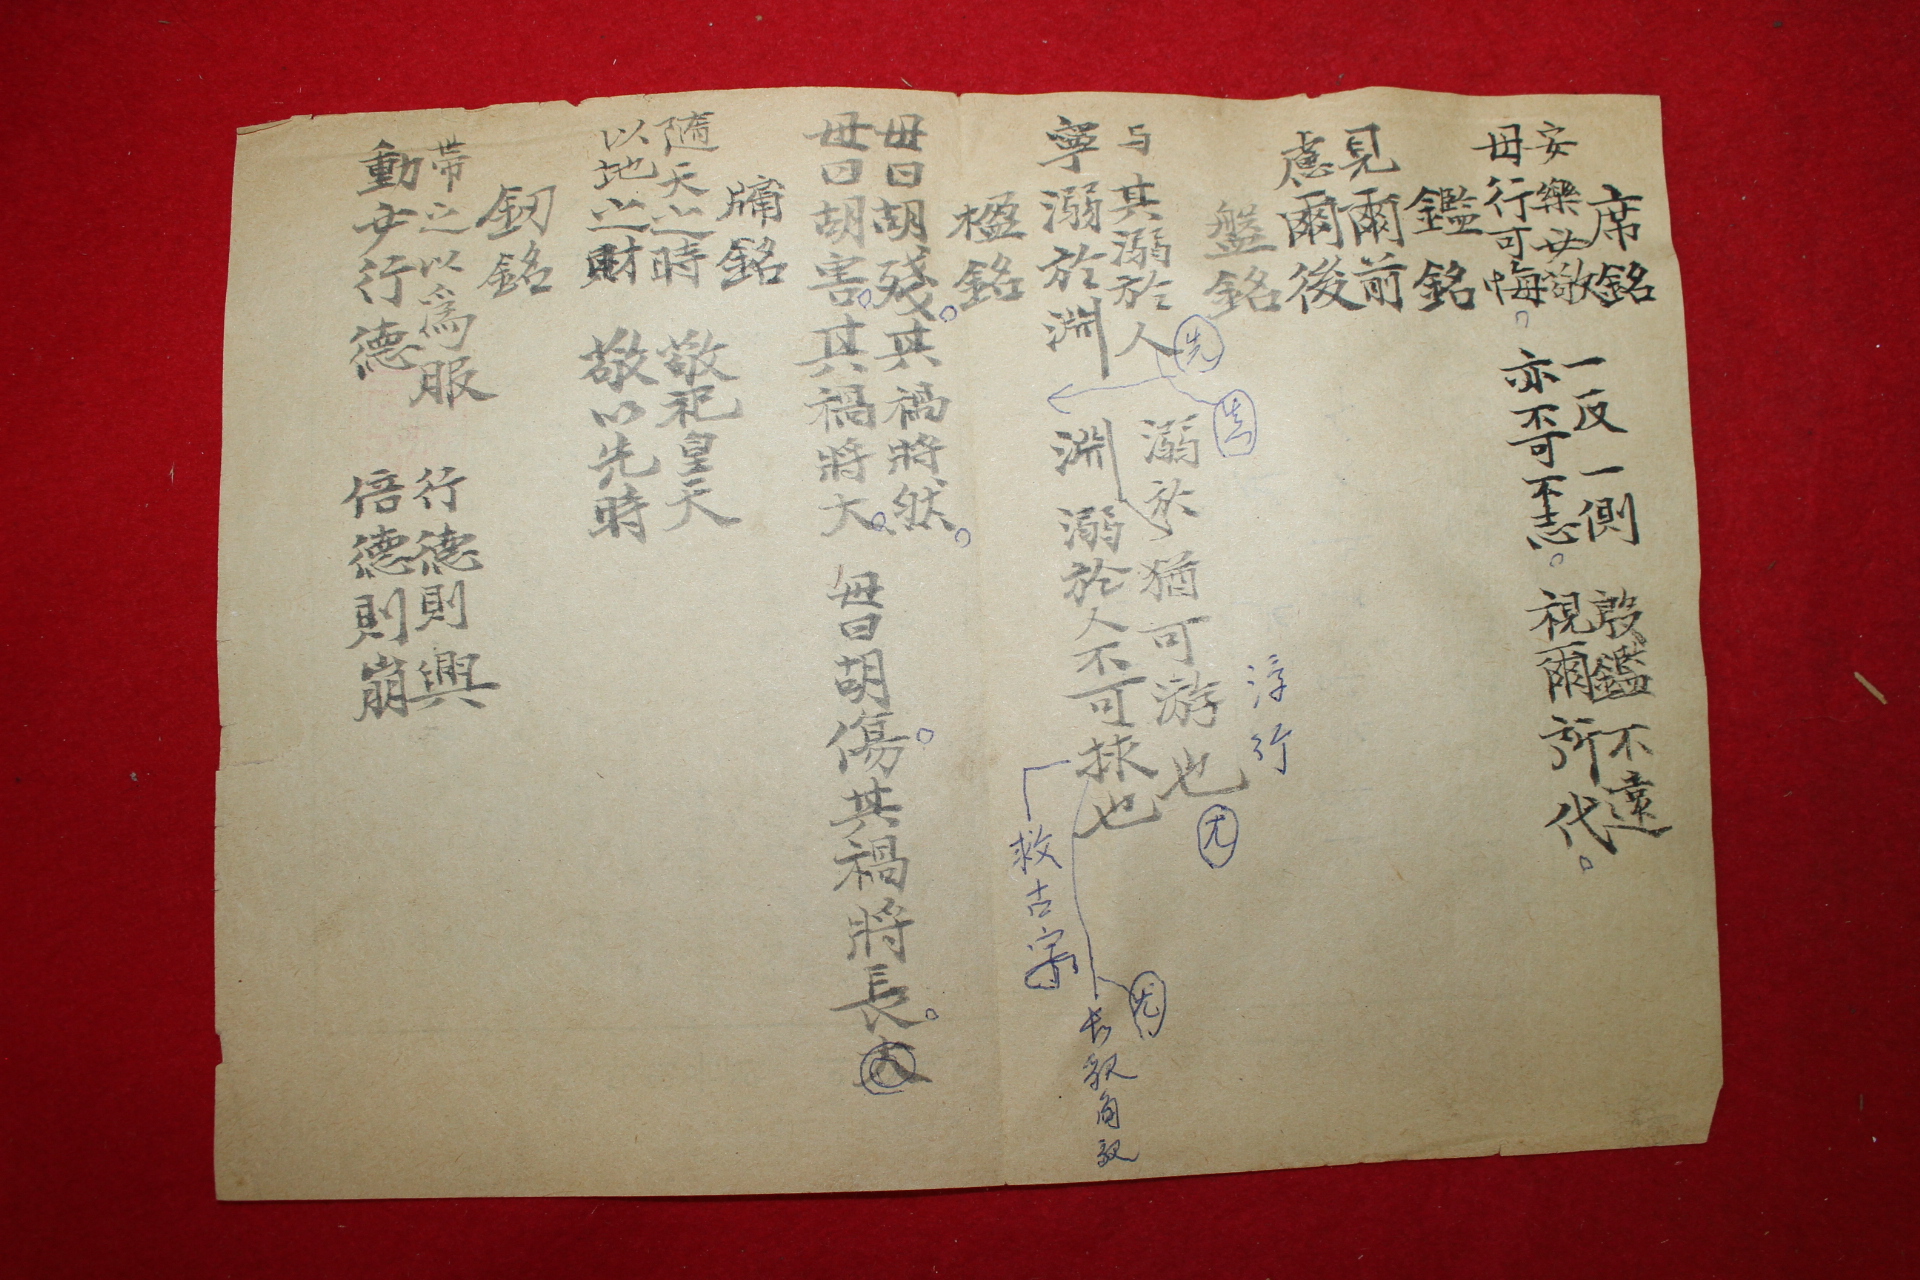 席銘
安樂必敬 一反一側 殷鑑不遠
毋行可悔。 亦不可不志。 視爾所代。
鑑銘
見爾前
慮爾後
盤銘
与其溺於人 溺於 猶可游也
寧溺於淵 淵 溺於人不可救也
先
尤
楹銘
毋曰胡殘。其禍將然。
毋曰胡害。其禍將大。 毋曰胡傷。其禍將長。
大
牖銘
隨天之時 敬祀皇天
以地之財 敬以先時
劒銘
帶之以為服 行德則興
動必行德 倍德則崩
救古字